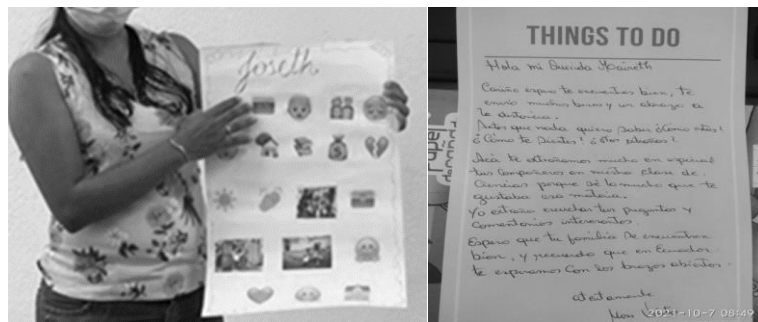 Joseth
THINGS TO DO
Hola mi Querida Maireth
Cariño espero te encuentres bien, te
envío muchos besos y un abrazo a
la distancia.
Antes que nada quiero saber ¿Cómo estás?
¿Cómo te Sientes? ¿Nos extrañas?
Acá te extrañamos mucho en especial
tus Compañeros en nuestra clase de
Ciencias porque sé lo mucho que te
gustaba esa materia.
Yo extraño escuchar tus preguntas y
Comentarios interesantes.
Espero que tu familia se encuentren
bien, y recuerda que en Ecuador
te esperamos Con los brazos abiertos.
atentamente
Miss
2021-10-7 08:49
papel